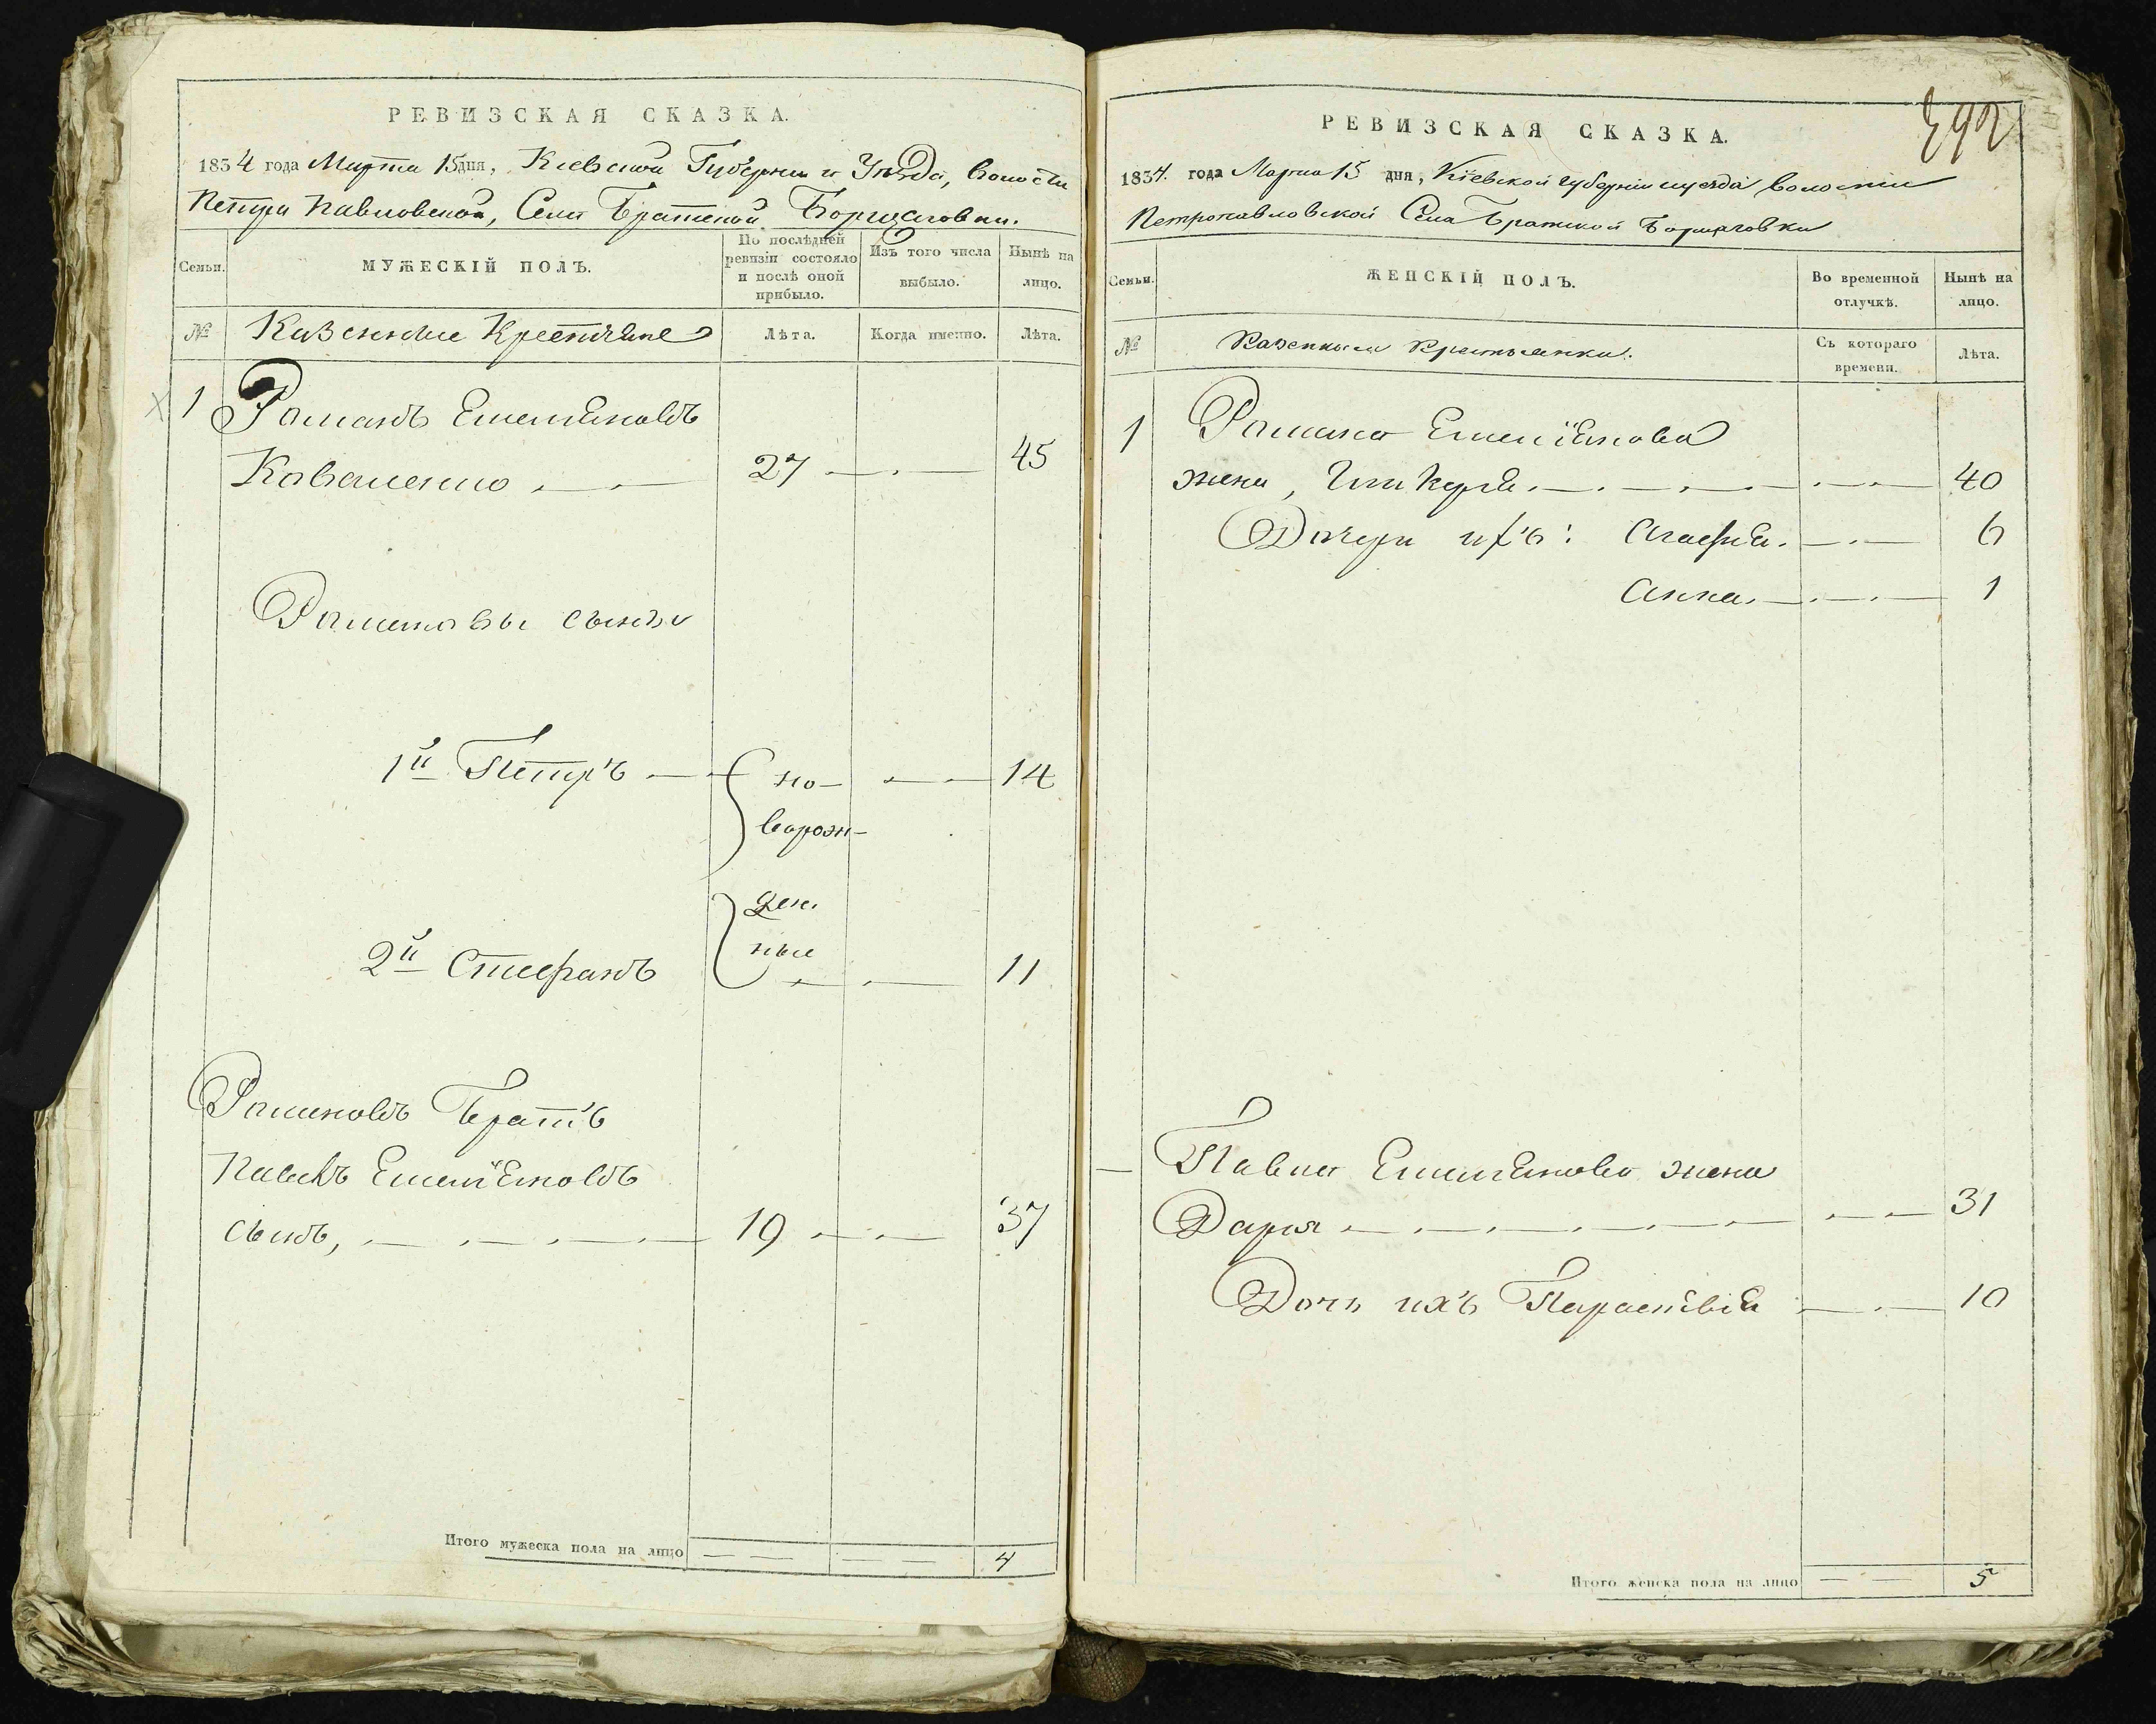 РЕВИЗСКАЯ СКАЗКА.
1834 года Марта 15 дня, Кіевской Губерніи и Уѣзда, волости
Петра Павловской, Села Братской Борщаговки.
Семьи.
МУЖЕСКІЙ ПОЛЪ.
По послѣдней ревизіи состояло и послѣ оной прибыло.
Изъ того числа выбыло.
Нынѣ на лицо.
№
Казенные Крестьяне
Лѣта.
Когда именно.
Лѣта.
1 Романъ Емельяновъ
Коваленко 27 45
Романовы сыны
1й Петръ но- 14
ворож-
ден
ные
2й Стефанъ 11
Романовъ Братъ
Павелъ Емельяновъ
сынъ, 19 37
Итого мужеска пола на лицо 4
392
РЕВИЗСКАЯ СКАЗКА.
1834. года Марта 15 дня, Кіевской губерніи и уезда волости
Петропавловской Села Братской Борщаговки
Семьи.
ЖЕНСКІЙ ПОЛЪ.
Во временной отлучкѣ.
Нынѣ на лицо.
№
Казенныя Крестьянки.
Съ котораго времени.
Лѣта.
1 Романа Емельянова
жена, 40
Дочери ихъ: Агафія. 6
Анна. 1
Павла Емельянова жена
Дарья 31
Дочь ихъ Параскевія 10
Итого женска пола на лицо 5